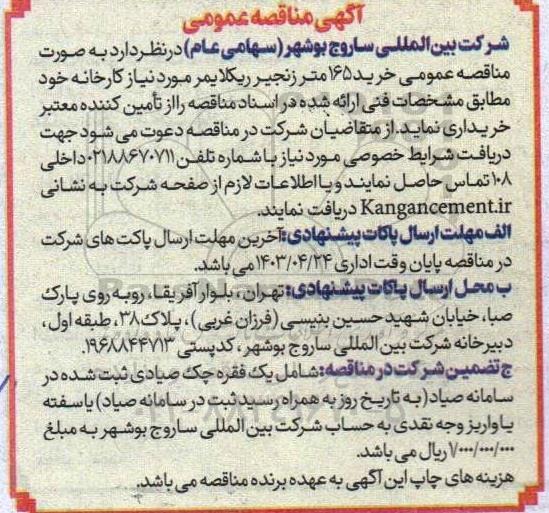 آگهی مناقصه عمومی
شرکت بین المللی ساروج بوشهر (سهامی عام) در نظر دارد به صورت
مناقصه عمومی خرید ۱۶۵ متر زنجیر ریکلایمر مورد نیاز کارخانه خود
مطابق مشخصات فنی ارائه شده در اسناد مناقصه را از تأمین کننده معتبر
خریداری نماید. از متقاضیان شرکت در مناقصه دعوت می شود جهت
دریافت شرایط خصوصی مورد نیاز با شماره تلفن ۰۲۱۸۸۶۷۰۷۱۱ داخلی
۱۰۸ تماس حاصل نمایند و یا اطلاعات لازم از صفحه شرکت به نشانی
Kangancement.ir دریافت نمایند.
الف مهلت ارسال پاکات پیشنهادی: آخرین مهلت ارسال پاکت های شرکت
در مناقصه پایان وقت اداری ۱۴۰۳/۰۴/۲۴ می باشد.
ب محل ارسال پاکات پیشنهادی: تهران، بلوار آفریقا، روبه روی پارک
صبا، خیابان شهید حسین بنیسی (فرزان غربی)، پلاک ۳۸، طبقه اول،
دبیرخانه شرکت بین المللی ساروج بوشهر، کدپستی ۱۹۶۸۸۴۴۷۱۳.
ج تضمین شرکت در مناقصه: شامل یک فقره چک صیادی ثبت شده در
سامانه صیاد (به تاریخ روز به همراه رسید ثبت در سامانه صیاد) یا سفته
یا واریز وجه نقدی به حساب شرکت بین المللی ساروج بوشهر به مبلغ
۷/۰۰۰/۰۰۰/۰۰۰ ریال می باشد.
هزینه های چاپ این آگهی به عهده برنده مناقصه می باشد.